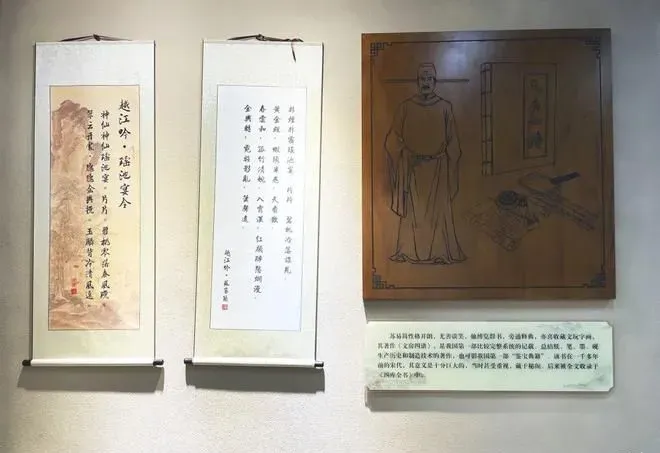 越江吟·瑶池宴令
神仙神仙瑶池宴。片片。碧桃零落春风晚。
翠云开处，隐隐金舆挽。玉麟背冷清风远。
非烟非雾瑶池宴。片片。碧桃冷落谁见。
黄金殿。虾须半卷。天香散。
春云和。孤竹清婉。入霄汉。红颜醉态烂漫。
金舆转。霓旌影乱。箫声远。
越江吟·苏易简
苏易简性格开朗，尤善谈笑，他博览群书，旁通释典，亦喜收藏文玩字画，
其著作《文房四谱》，是我国第一部比较完整系统的记载、总结纸、笔、墨、砚
生产历史和制造技术的著作，也可谓我国第一部“鉴宝典籍”。该书在一千多年
前的宋代，其意义是十分巨大的，当时甚受重视，藏于秘阁，后来被全文收录于
《四库全书》中。